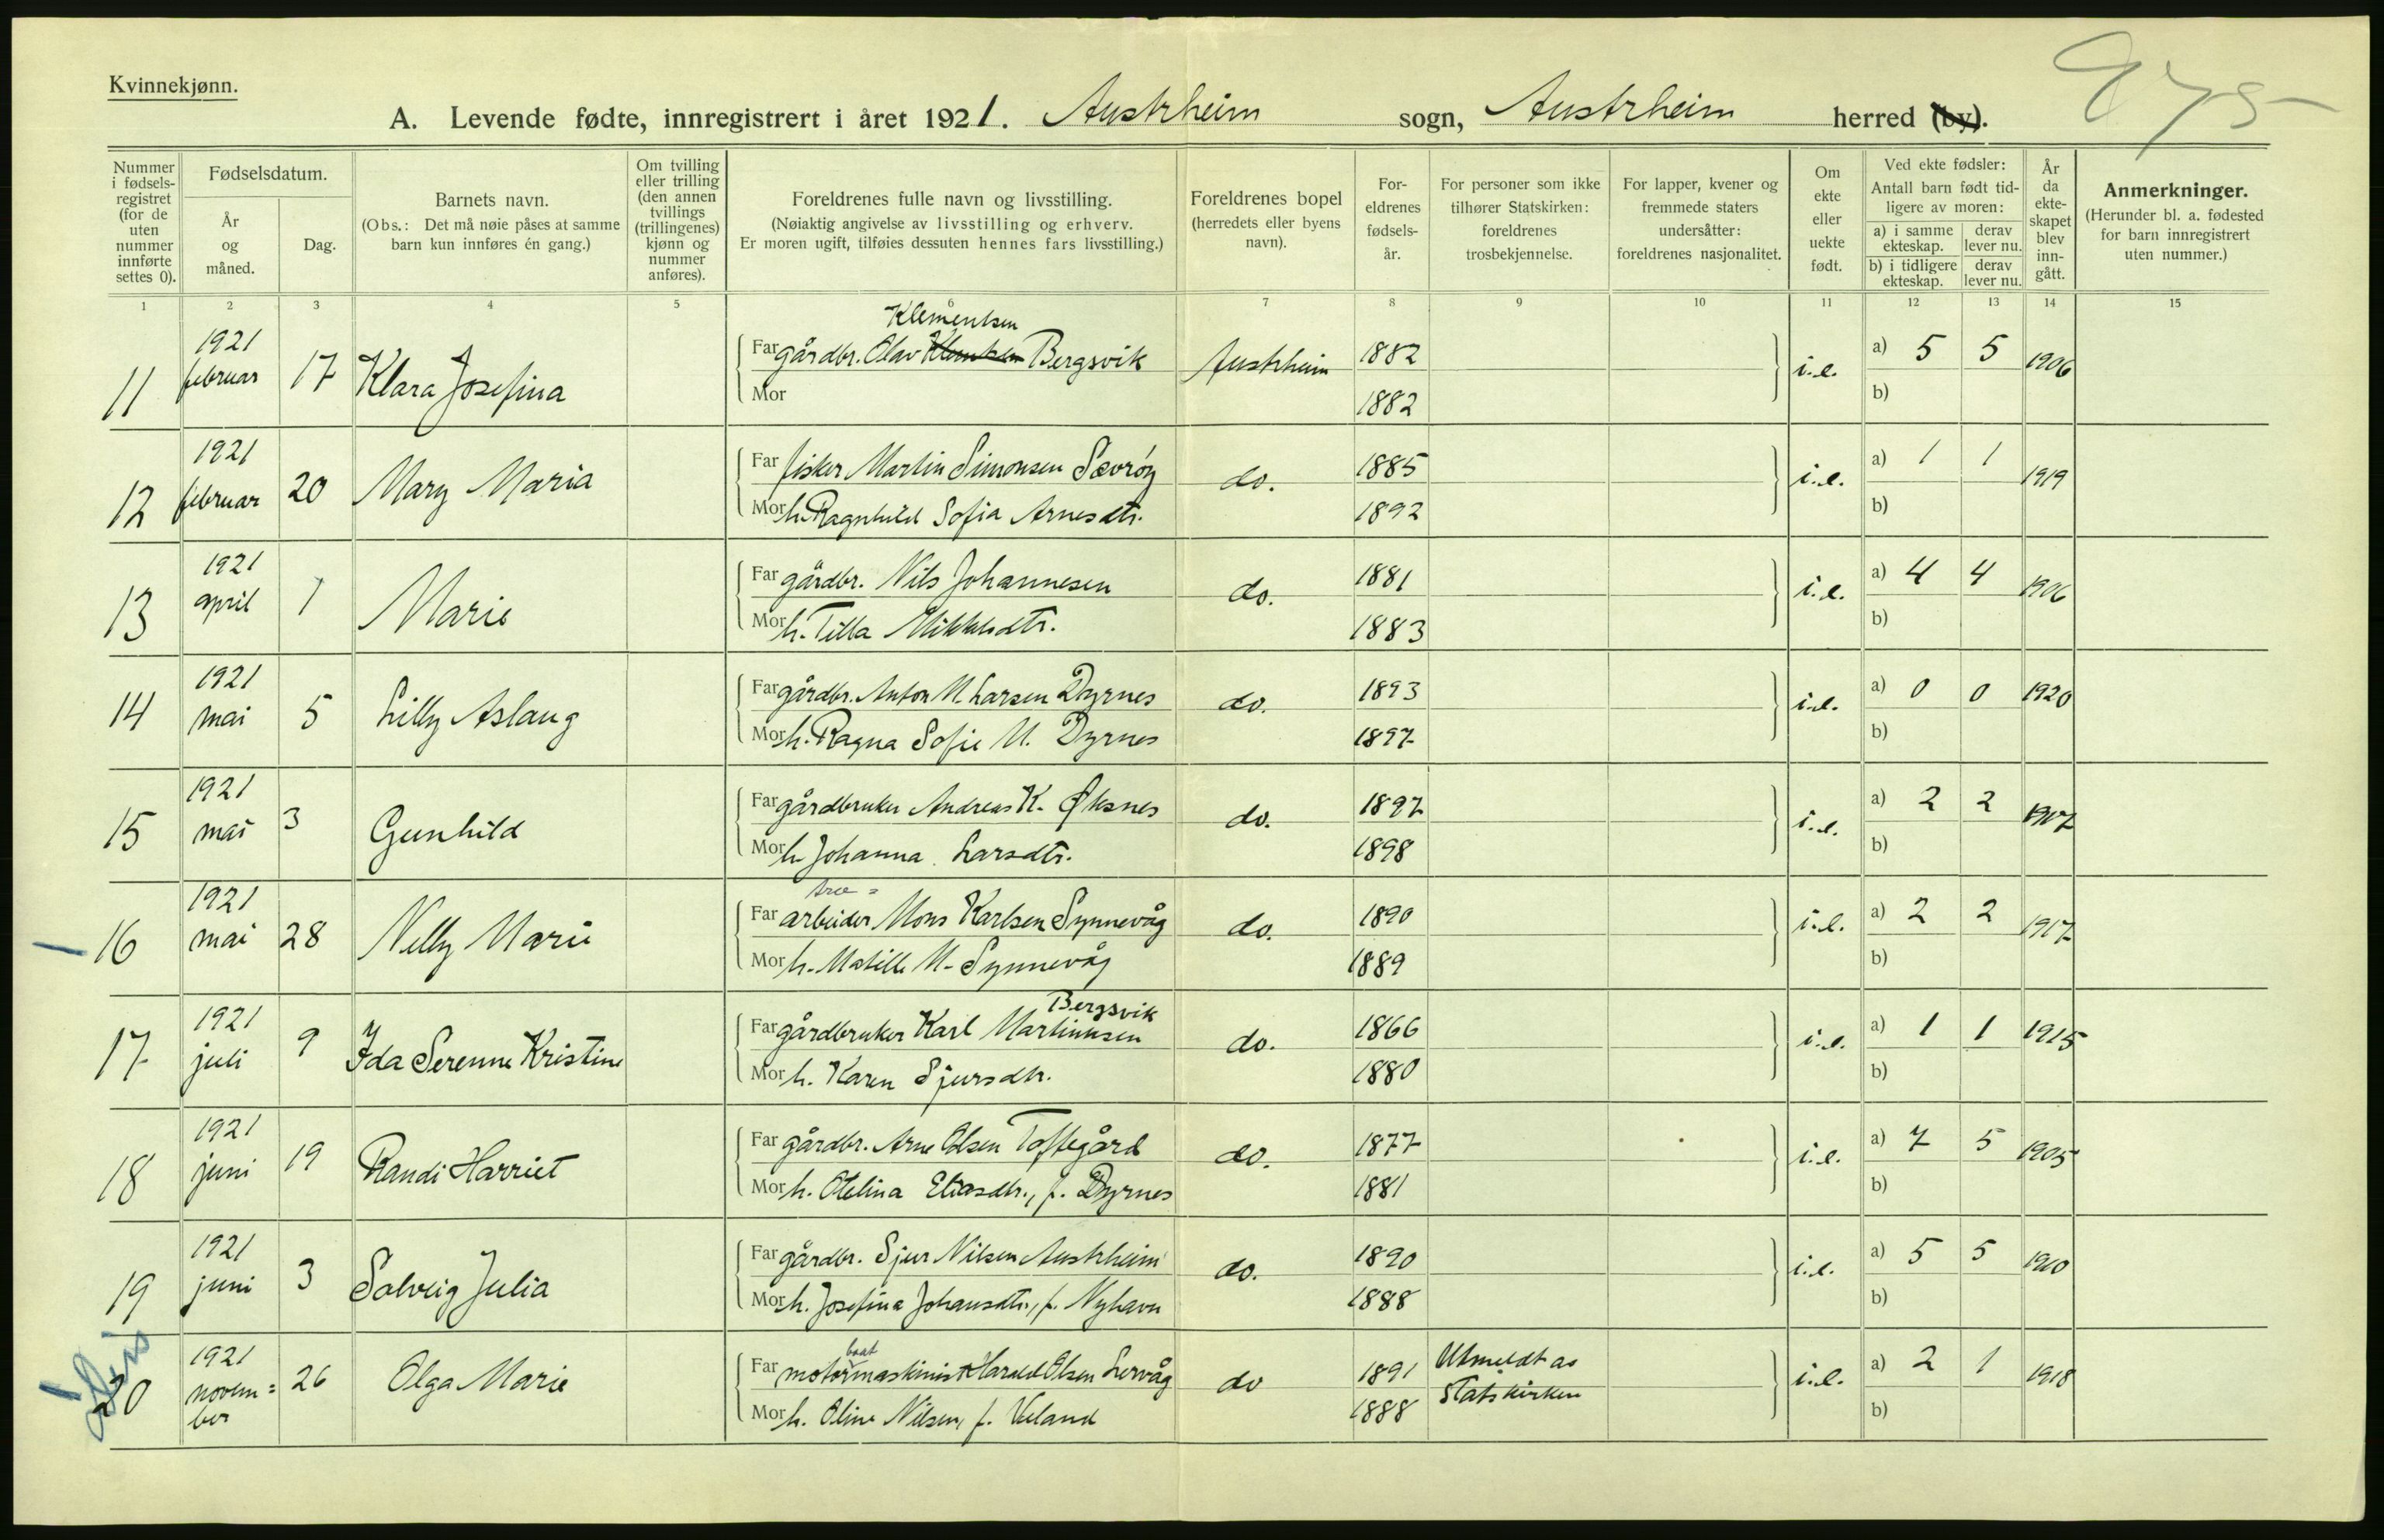 Kvinnekjønn.
A. Levende fødte, innregistrert i året 1921. Austrheim sogn, Austrheim herred (by).
Nummer i fødsels-registret (for de uten nummer innførte settes 0).
Fødselsdatum.
År og måned.
Dag.
Barnets navn.
(Obs.: Det må nøie påses at samme barn kun innføres én gang.)
Om tvilling eller trilling (den annen tvillings (trillingenes) kjønn og nummer anføres).
Foreldrenes fulle navn og livsstilling.
(Nøiaktig angivelse av livsstilling og erhverv.
Er moren ugift, tilføies dessuten hennes fars livsstilling.)
Foreldrenes bopel (herredets eller byens navn).
For-eldrenes fødsels-år.
For personer som ikke tilhører Statskirken: foreldrenes trosbekjennelse.
For lapper, kvener og fremmede staters undersåtter: foreldrenes nasjonalitet.
Om ekte eller uekte født.
Ved ekte fødsler:
Antall barn født tid-ligere av moren:
a) i samme ekteskap. derav lever nu.
b) i tidligere ekteskap. derav lever nu.
År da ekte-skapet blev inn-gått.
Anmerkninger.
(Herunder bl. a. fødested for barn innregistrert uten nummer.)
1 2 3 4 5 6 7 8 9 10 11 12 13 14 15
Klementsen
11 1921 februar 17 Klara Josefina Far gårdbr. Olav Bergsvik Austrheim 1882 i.e. a) 5 5 1906
Mor 1882 b)
12 1921 februar 20 Mary Maria Far fisker Martin Simonsen Sævrøy do. 1885 i.e. a) 1 1 1919
Mor h. Ragnhild Sofia Arnesdtr. 1892 b)
13 1921 april 7 Marie Far gårdbr. Nils Johannesen do. 1881 i.e. a) 4 4 1906
Mor h. Tilla Mikkelsdtr. 1883 b)
14 1921 mai 5 Lilly Aslaug Far gårdbr. Anton M. Larsen Dyrnes do. 1893 i.e. a) 0 0 1920
Mor h. Ragna Sofie M. Dyrnes 1897 b)
15 1921 mai 3 Gunhild Far gårdbruker Andreas K. Øksnes do. 1897 i.e. a) 2 2 1917
Mor h. Johanna Larsdtr. 1898 b)
16 1921 mai 28 Nelly Marie Far arbeider Mons Karlsen Synnevåg do. 1890 i.e. a) 2 2 1917
Mor h. Matille M. Synnevåg 1889 b)
Bergsvik
17 1921 juli 9 Ida Serenne Kristine Far gårdbruker Karl Martinusen do. 1866 i.e. a) 1 1 1915
Mor h. Karen Sjursdtr. 1880 b)
18 1921 juni 19 Randi Harriet Far gårdbr. Arne Olsen Toftegård do. 1877 i.e. a) 7 5 1905
Mor h. Otelina Eliasdtr., f. Dyrnes 1881 b)
19 1921 juni 3 Solveig Julia Far gårdbr. Sjur Nilsen Austrheim do. 1890 i.e. a) 5 5 1910
Mor h. Josefina Johansdtr., f. Nyhavn 1888 b)
baat
20 1921 novem=ber 26 Olga Marie Far motormaskinist Harald Olsen Lervåg do 1891 Utmeldt av Statskirken i.e. a) 2 1 1918
Mor h. Oline Nilsen, f. Veland 1888 b)